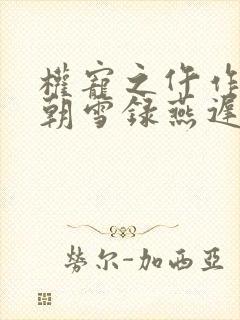 權寵之仵作
朝雪録燕遲
勞尔-加西亞